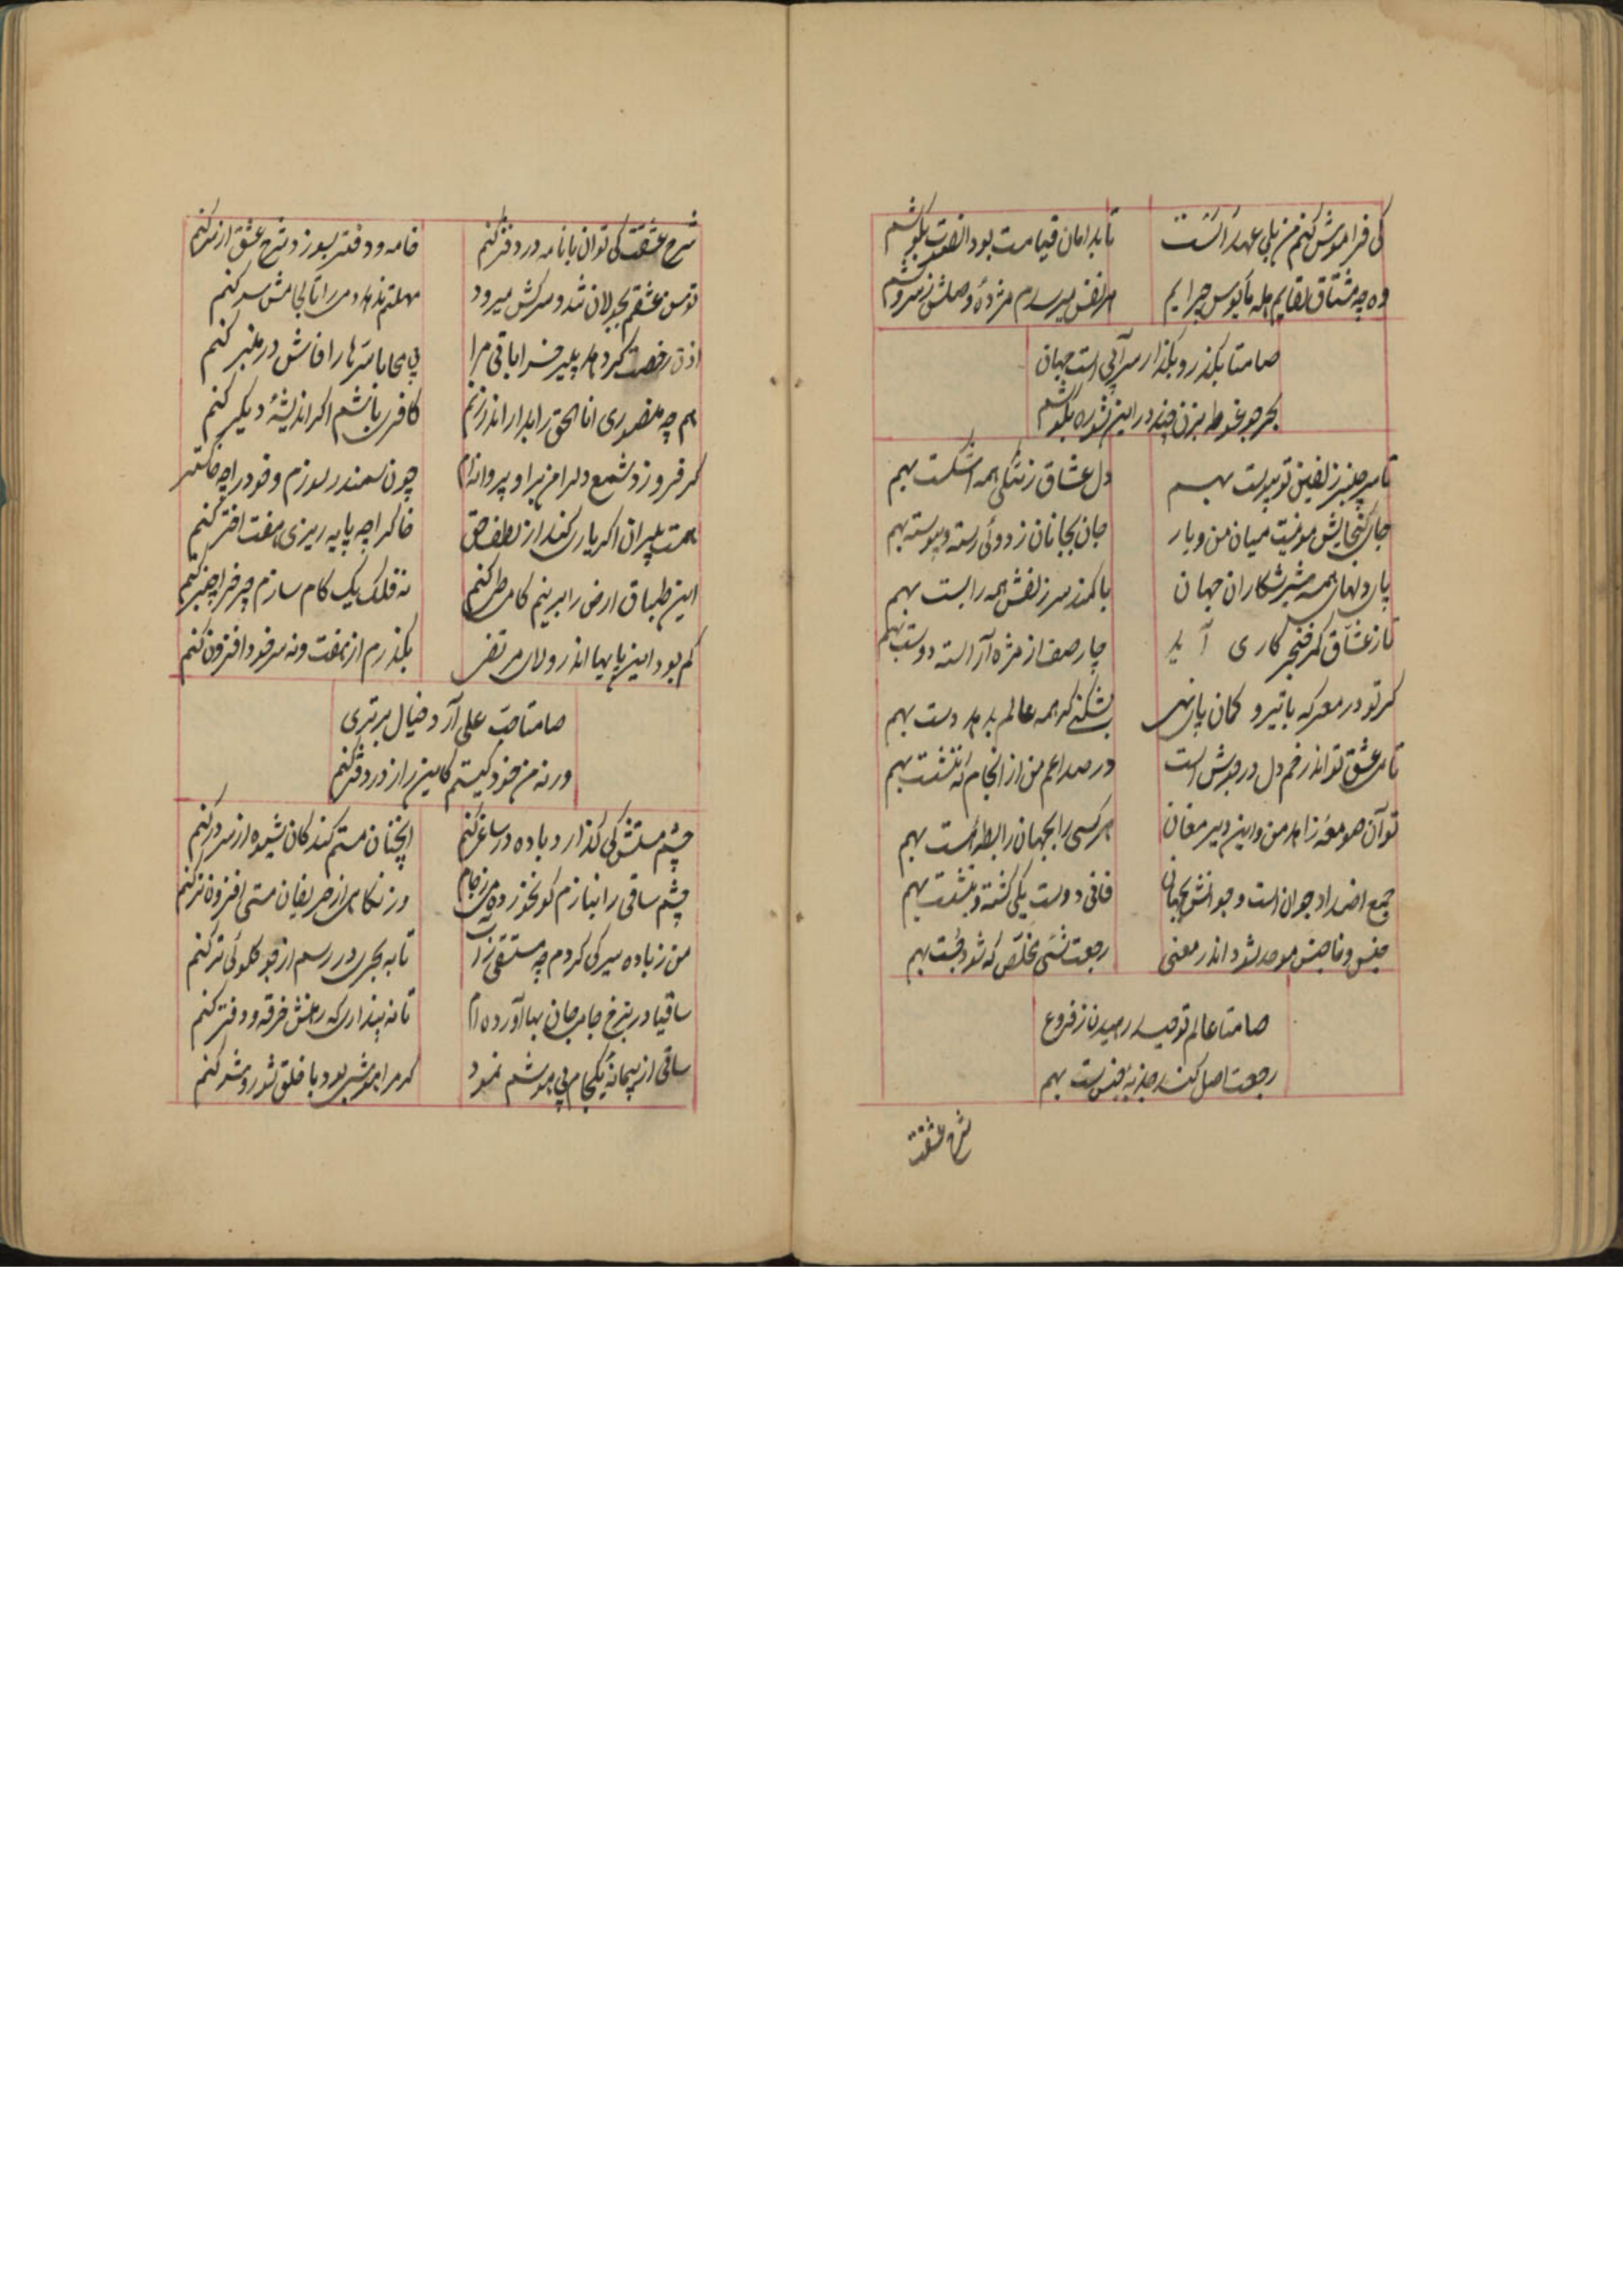 کی فراموش کنم من بلی عهد الست
تا بدامان قیامت بود الصوت بگوشم
وه چه مشتاق لقایم مأیوس چرایم
هر نفس میرسدم مژدهٔ وصلش ز سروشم
صامتا بگذر و بگذار سرائی است جهان
بحر جو غوطه بزن چند در این شوره بکوشم
تا سر چنبر زلفین تو پیوست بهم
دل عشاق ز تنگی همه اشکست بهم
جای گنجایش مو نیست میان من و یار
جان بجانان ز دوئی رسته و پیوسته بهم
پای دلهای همه شیر شکاران جهان
با کمند سر زلفش همه را بست بهم
تا ز عشاق کرا خنجر کاری آید
چار صف از مژه آراسته دو دست بهم
گر تو در معرکه با تیر و کمان پای نهی
بشکنی گر همه عالم بدهد دست بهم
تا می عشق تو اندر خم دل در جوش است
در صداعم من از انجام که ننشست بهم
تو آن صومعه زاهد من و این دیر مغان
هر کسی را بجهان رابطه‌ای است بهم
جمع اضداد جوان است و جوانش بجهان
فانی دوست یکی گشته و بنشست بهم
جنس و ناجنس موحد نشود اندر معنی
رجعت شیء مخلص که شود جست بهم
صامتا عالم توحید رمیدن ز فروع
رجعت اصل کند جذبهٔ جنس است بهم
شرح عشقت
شرح عشقت کی توان با نامه در دفتر کنم
خامه و دفتر بسوزد شرح عشق ار سر کنم
توسن عشقم بجولان شد و سرکش میرود
مهلتم ندهد دمی را تا لجامش سر کنم
اذن رخصت کر دهد پیر خراباتی مرا
بی محابا سرها را فاش در منبر کنم
هم چه منصوری انا الحق را بدار اندر زنم
کافری باشم اگر اندیشهٔ دیگر کنم
گر فروزد شمع دلرا من برا و پروانه‌ام
چون سمندر سوزم و خود را چه خاکستر
همت پیران اگر یاری کند از لطف حق
خاک را چه پایه ریزی هفت اختر کنم
این طباق ارض را بر نیم گامی طی کنم
نه فلک یک گام سازم چرخ را چنبر کنم
کم بود این پایها اندر ولای مرتضی
بگذرم از هفت و نه سر خود افزون کنم
صامتا حب علی آرد خیال برتری
ورنه من خود کیستم کاین راز در دفتر کنم
چشم مستش کی گذارد باده در ساغر کنم
آنچنان مستم کند کان شیوه از سر در کنم
چشم ساقی را بنازم کو نخورده می ز جام
ور نگاهی از حریفان مستی افزون تر کنم
من ز باده سیر کی گردم چه مستسقی ز آب
تا به بحری در رسم از جو گلوئی تر کنم
ساقیا در نرخ جامی جان بها آورده‌ام
تا نه پنداری که رهنش خرقه و دفتر کنم
ساقی از پیمانهٔ یکجام بی هوشم نمود
گر مرا هوشی بود با خلق شور و شر کنم